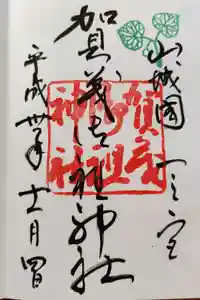 山城國一之宮
賀茂御祖神社
平成卅年十一月四日
賀茂御祖神社